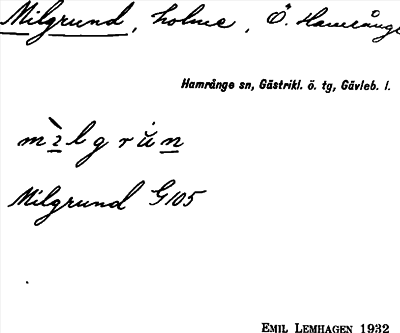 Milgrund, holme, Ö. Hamrånge
Hamrånge sn, Gästrikl. ö. tg, Gävleb. l.
mìlgrŭn
Milgrund G105
EMIL LEMHAGEN 1932